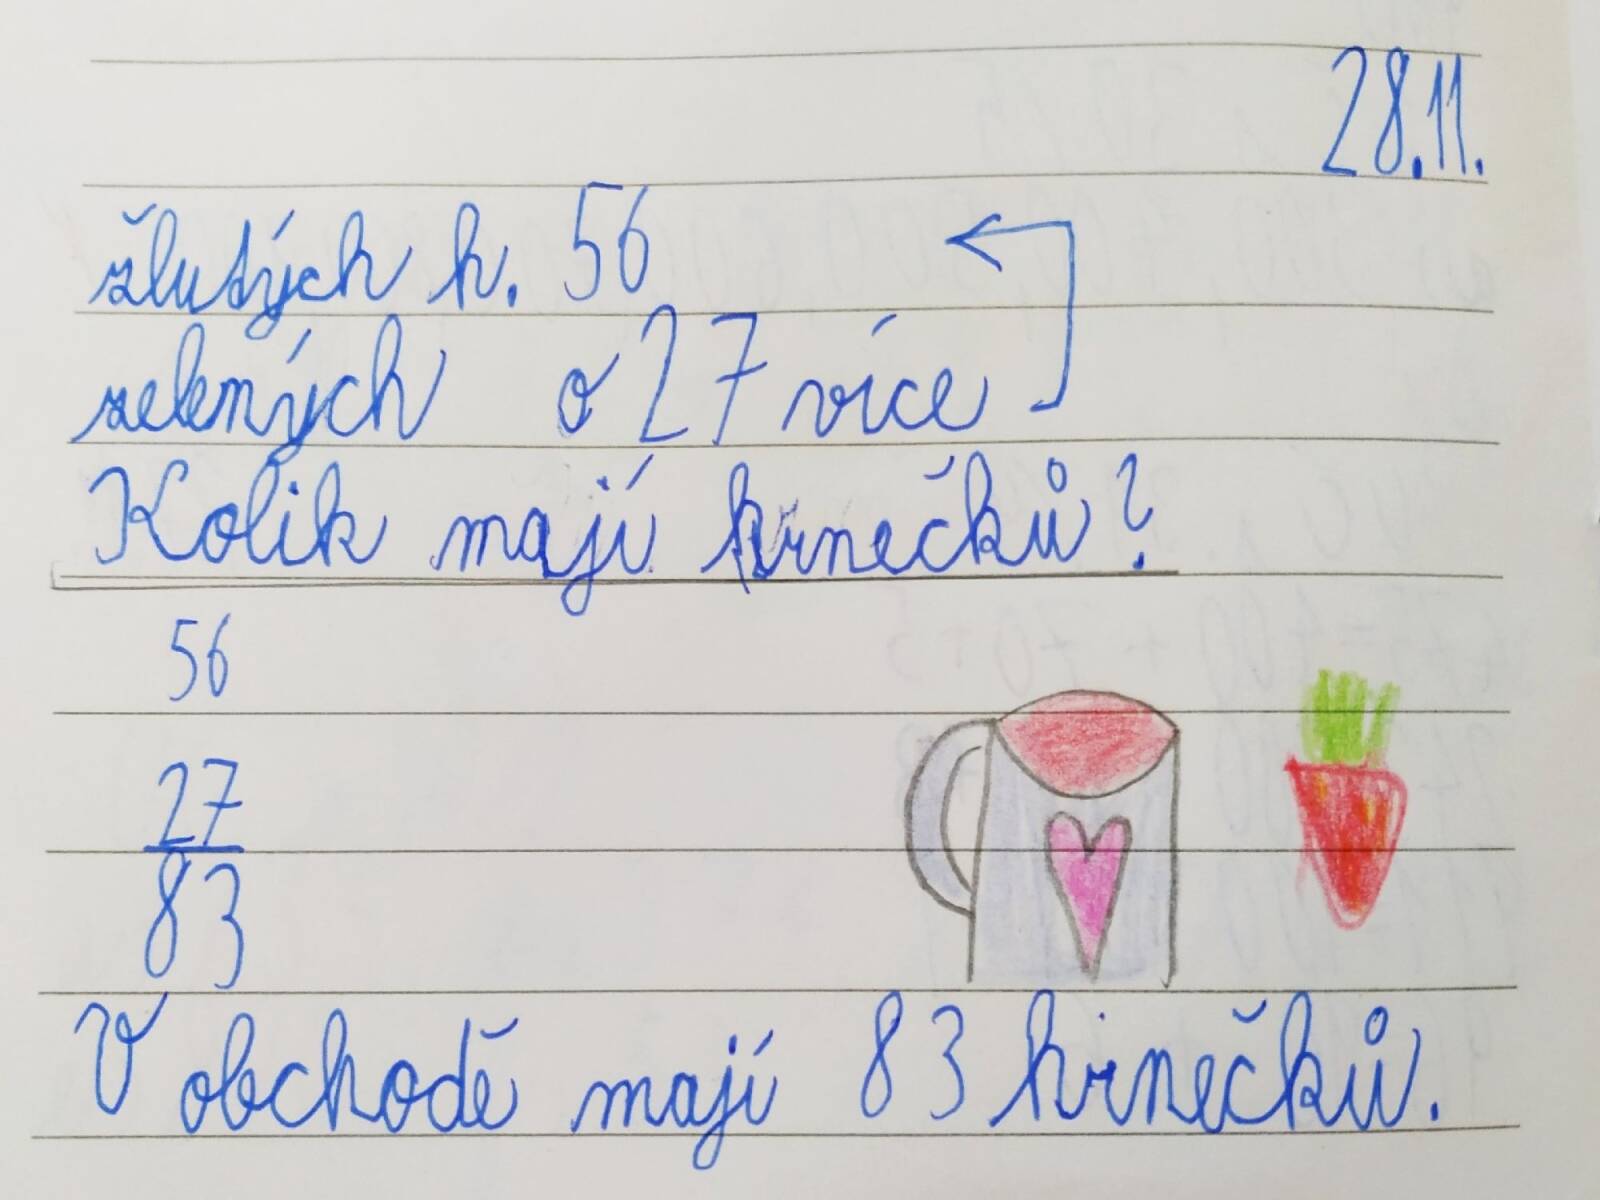 28.11.
žlutých h. 56
zelených o 27 více
Kolik mají hrnečků?
56
27
83
V obchodě mají 83 hrnečků.